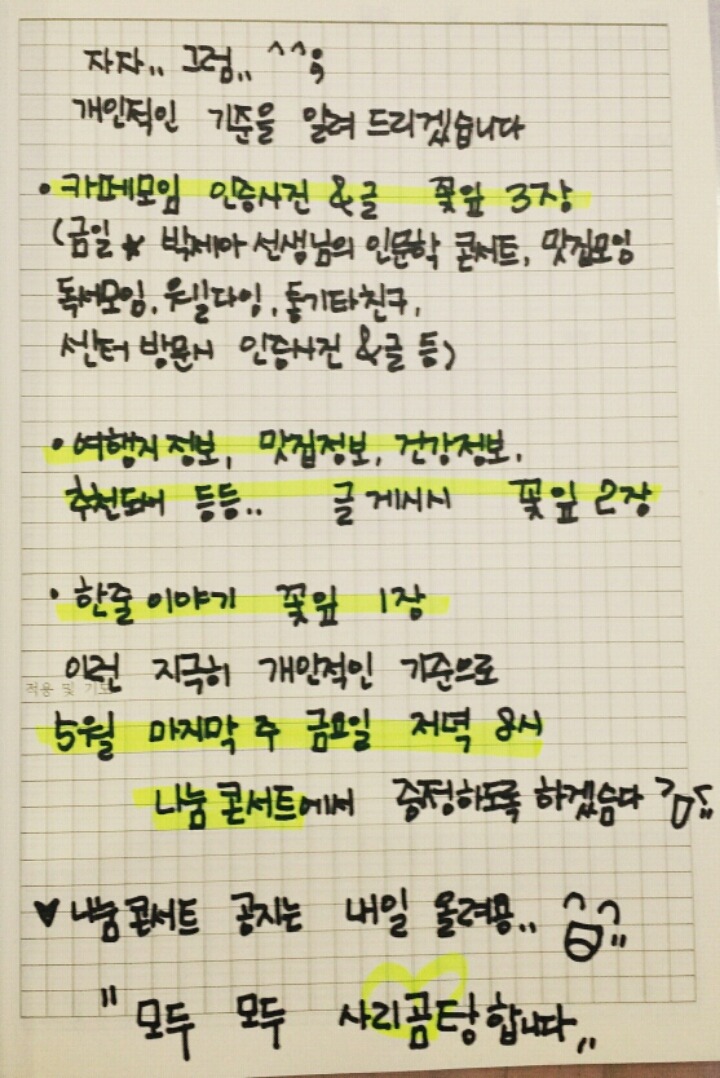 자자.. 그럼.. ^^;
개인적인 기준을 알려 드리겠습니다
• 카페모임 인증사진 & 글 꽃잎 3장
(금일 ★ 박제아 선생님의 인문학 콘서트, 맛집모임
독서모임, 우쿨다잉, 통기타친구,
센터 방문시 인증사진 & 글 등)
• 여행지 정보, 맛집정보, 건강정보,
추천도서 등등.. 글 게시시 꽃잎 2장
• 한줄 이야기 꽃잎 1장
이런 지극히 개인적인 기준으로
적용 및
5월 마지막 주 금요일 저녁 8시
나눔 콘서트에서 증정하도록 하겠슴다
♥ 나눔 콘서트 공지는 내일 올려용.. ^^
"모두 모두 사리곰탕합니다"